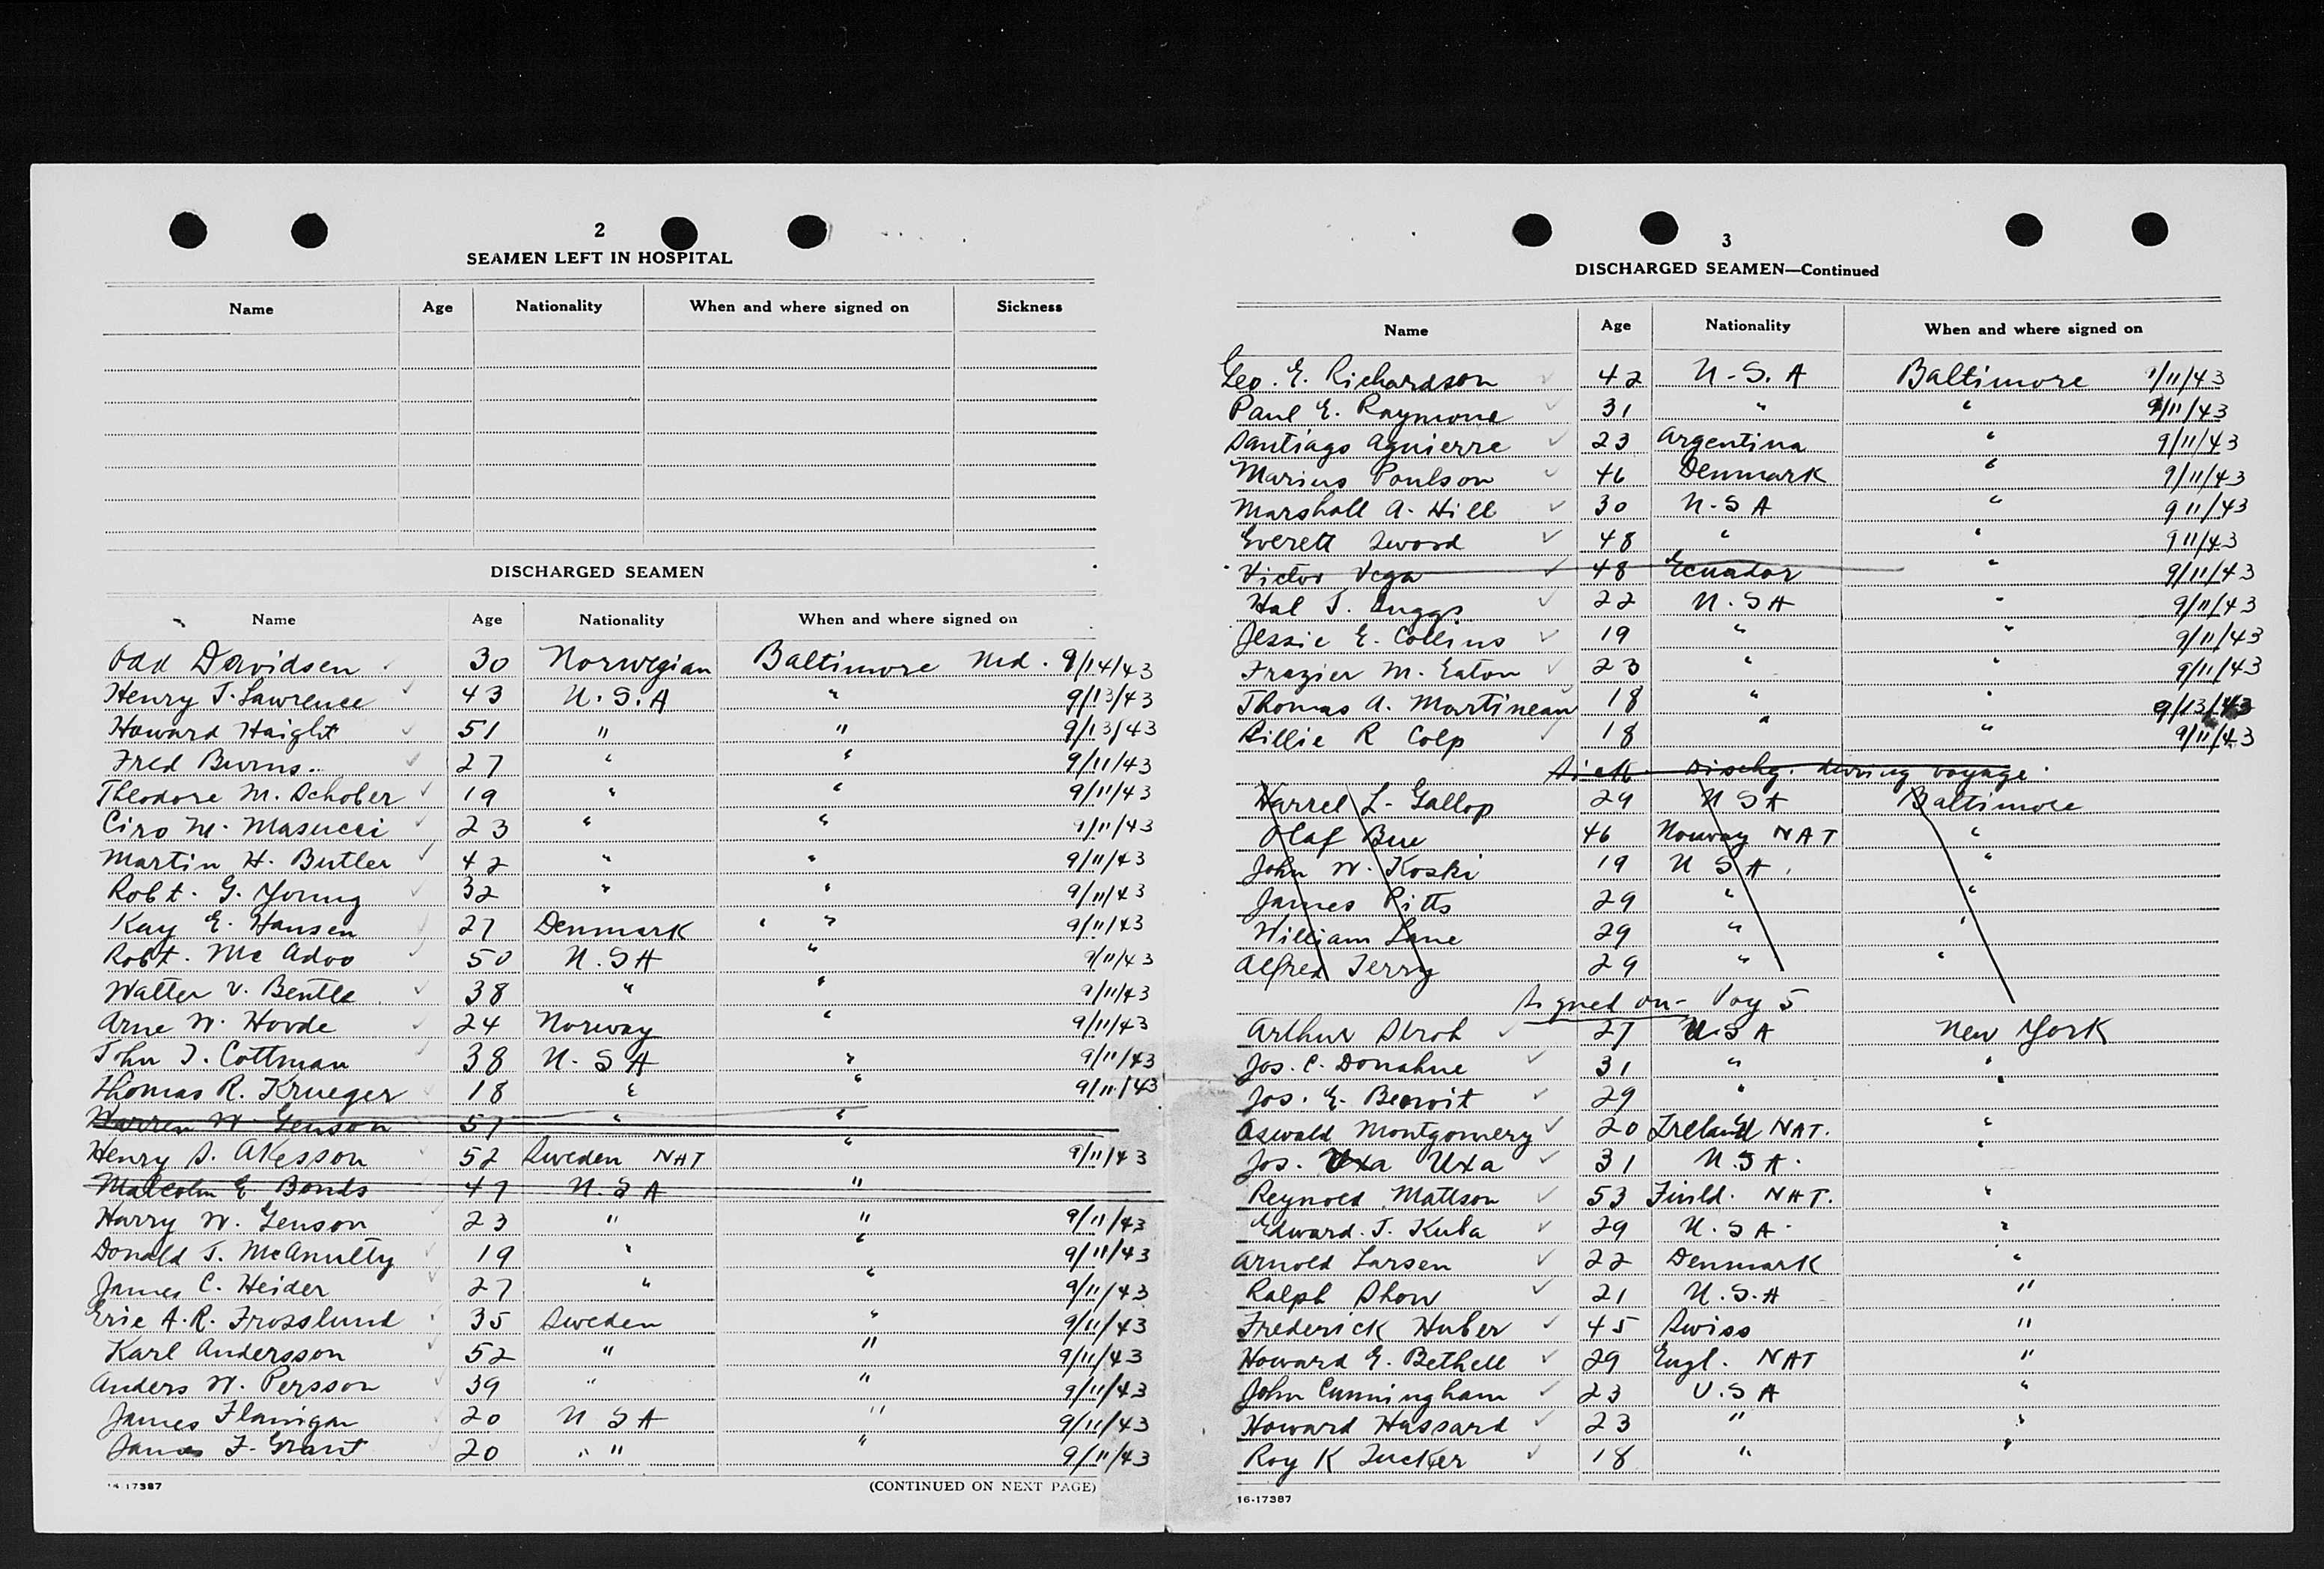 2
SEAMEN LEFT IN HOSPITAL
Name Age Nationality When and where signed on Sickness
DISCHARGED SEAMEN
Name Age Nationality When and where signed on
Odd Davidsen 30 Norwegian Baltimore Md. 9/14/43
Henry J. Lawrence 43 U.S.A " 9/13/43
Howard Haight 51 " " 9/13/43
Fred Burns 27 " " 9/11/43
Theodore M. Schober 19 " " 9/11/43
Ciro M. Masucci 23 " " 9/11/43
Martin H. Butler 42 " " 9/11/43
Robt. G. Young 32 " " 9/11/43
Kay E. Hansen 27 Denmark " " 9/11/43
Robt. Mc Adoo 50 U.S.A " 9/11/43
Walter V. Bentle 38 " " 9/11/43
Arne W. Hovde 24 Norway " 9/11/43
John J. Cottman 38 U.S.A " 9/11/43
Thomas R. Krueger 18 " " 9/11/43
Warren W. Genson 57 " "
Henry S. Akesson 52 Sweden NAT " 9/11/43
Malcolm E. Bonds 47 U.S.A "
Harry W. Genson 23 " " 9/11/43
Donald J. McAnulty 19 " " 9/11/43
James C. Heider 27 " " 9/11/43
Eric A.R. Frosslund 35 Sweden " 9/11/43
Karl Andersson 52 " " 9/11/43
Anders W. Persson 39 " " 9/11/43
James Flanigan 20 U S A " 9/11/43
James F. Grant 20 " " " 9/11/43
16-17387 (CONTINUED ON NEXT PAGE)
3
DISCHARGED SEAMEN—Continued
Name Age Nationality When and where signed on
Geo. E. Richardson 42 U.S.A Baltimore 9/11/43
Paul E. Raymond 31 " " 9/11/43
Santiago Aguierre 23 Argentina " 9/11/43
Marius Poulson 46 Denmark " 9/11/43
Marshall A. Hill 30 U.S A " 9 11/43
Everett Sword 48 " " 9 11/43
Victor Vega 48 Ecuador " 9/11/43
Hal J. Suggs 22 U.S A " 9/11/43
Jessie E. Collins 19 " " 9/11/43
Frazier M. Eaton 23 " " 9/11/43
Thomas A. Martineau 18 " " 9/13/43
Billie R Colp 18 " " 9/11/43
Sick - Dischg. during voyage
Harrel L. Gallop 29 U S A Baltimore
Olaf Bue 46 Norway NAT "
John W. Koski 19 U S A "
James Pitts 29 " "
William Lane 29 " "
Alfred Terry 29 " "
Signed on - Voy 5
Arthur Strob 27 U.S A New York
Jos. C. Donahue 31 " "
Jos. E. Benoit 29 " "
Oswald Montgomery 20 Ireland NAT. "
Jos. Uxa Uxa 31 U.S A. "
Reynold Mattson 53 Finld. NAT. "
Edward. J. Kuba 29 U.S A. "
Arnold Larsen 22 Denmark "
Ralph Show 21 U.S.A "
Frederick Huber 45 Swiss "
Howard E. Bethell 29 Engl. NAT "
John Cunningham 23 U.S A "
Howard Hassard 23 " "
Roy K Tucker 18 " "
16-17387